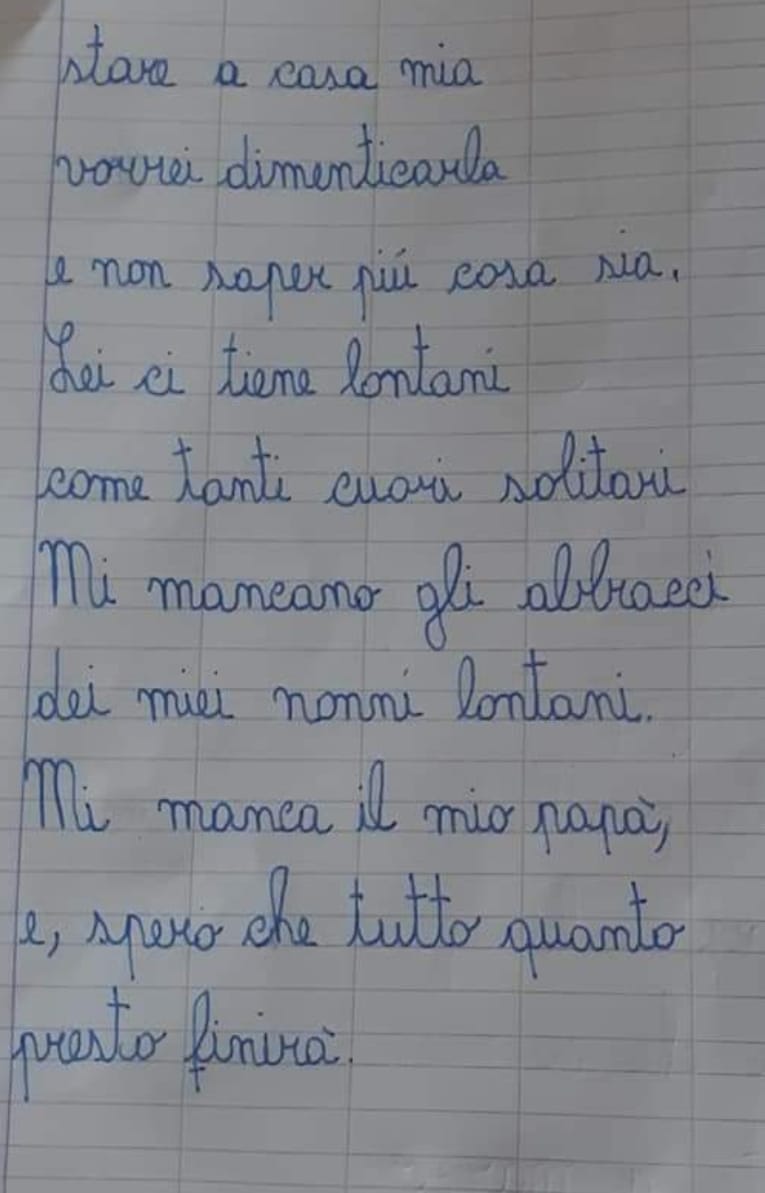 stare a casa mia
vorrei dimenticarla
e non saper più cosa sia.
Lei ci tiene lontani
come tanti cuori solitari
Mi mancano gli abbracci
dei miei nonni lontani.
Mi manca il mio papà,
e, spero che tutto quanto
presto finirà.